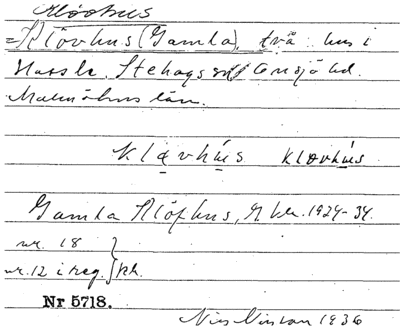 Klövhus
=Klövhus (Gamla), två hus i
Hassle, Stehags sn, Onsjö hd.
Malmöhus län.
klavhús klovhús
Gamla Klöfhus, Gkbr. 1924-34.
nr. 18
nr. 12 i reg. } kk.
Nr 5718.
Nils Nilsson 1936